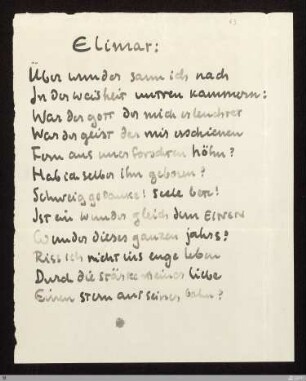 Elimar:
Über wunder sann ich nach
In der weisheit untren kammern:
War der gott der mich erleuchtet
War der geist der mir erschienen
Fern aus unerforschten höhn?
Hab ich selber ihn geboren?
Schweig gedanke! Seele bete!
Ist ein wunder gleich dem EINEN
Wunder dieses ganzen jahrs?
Riss ich nicht ins enge leben
Durch die stärke meiner liebe
Einen stern aus seiner bahn?